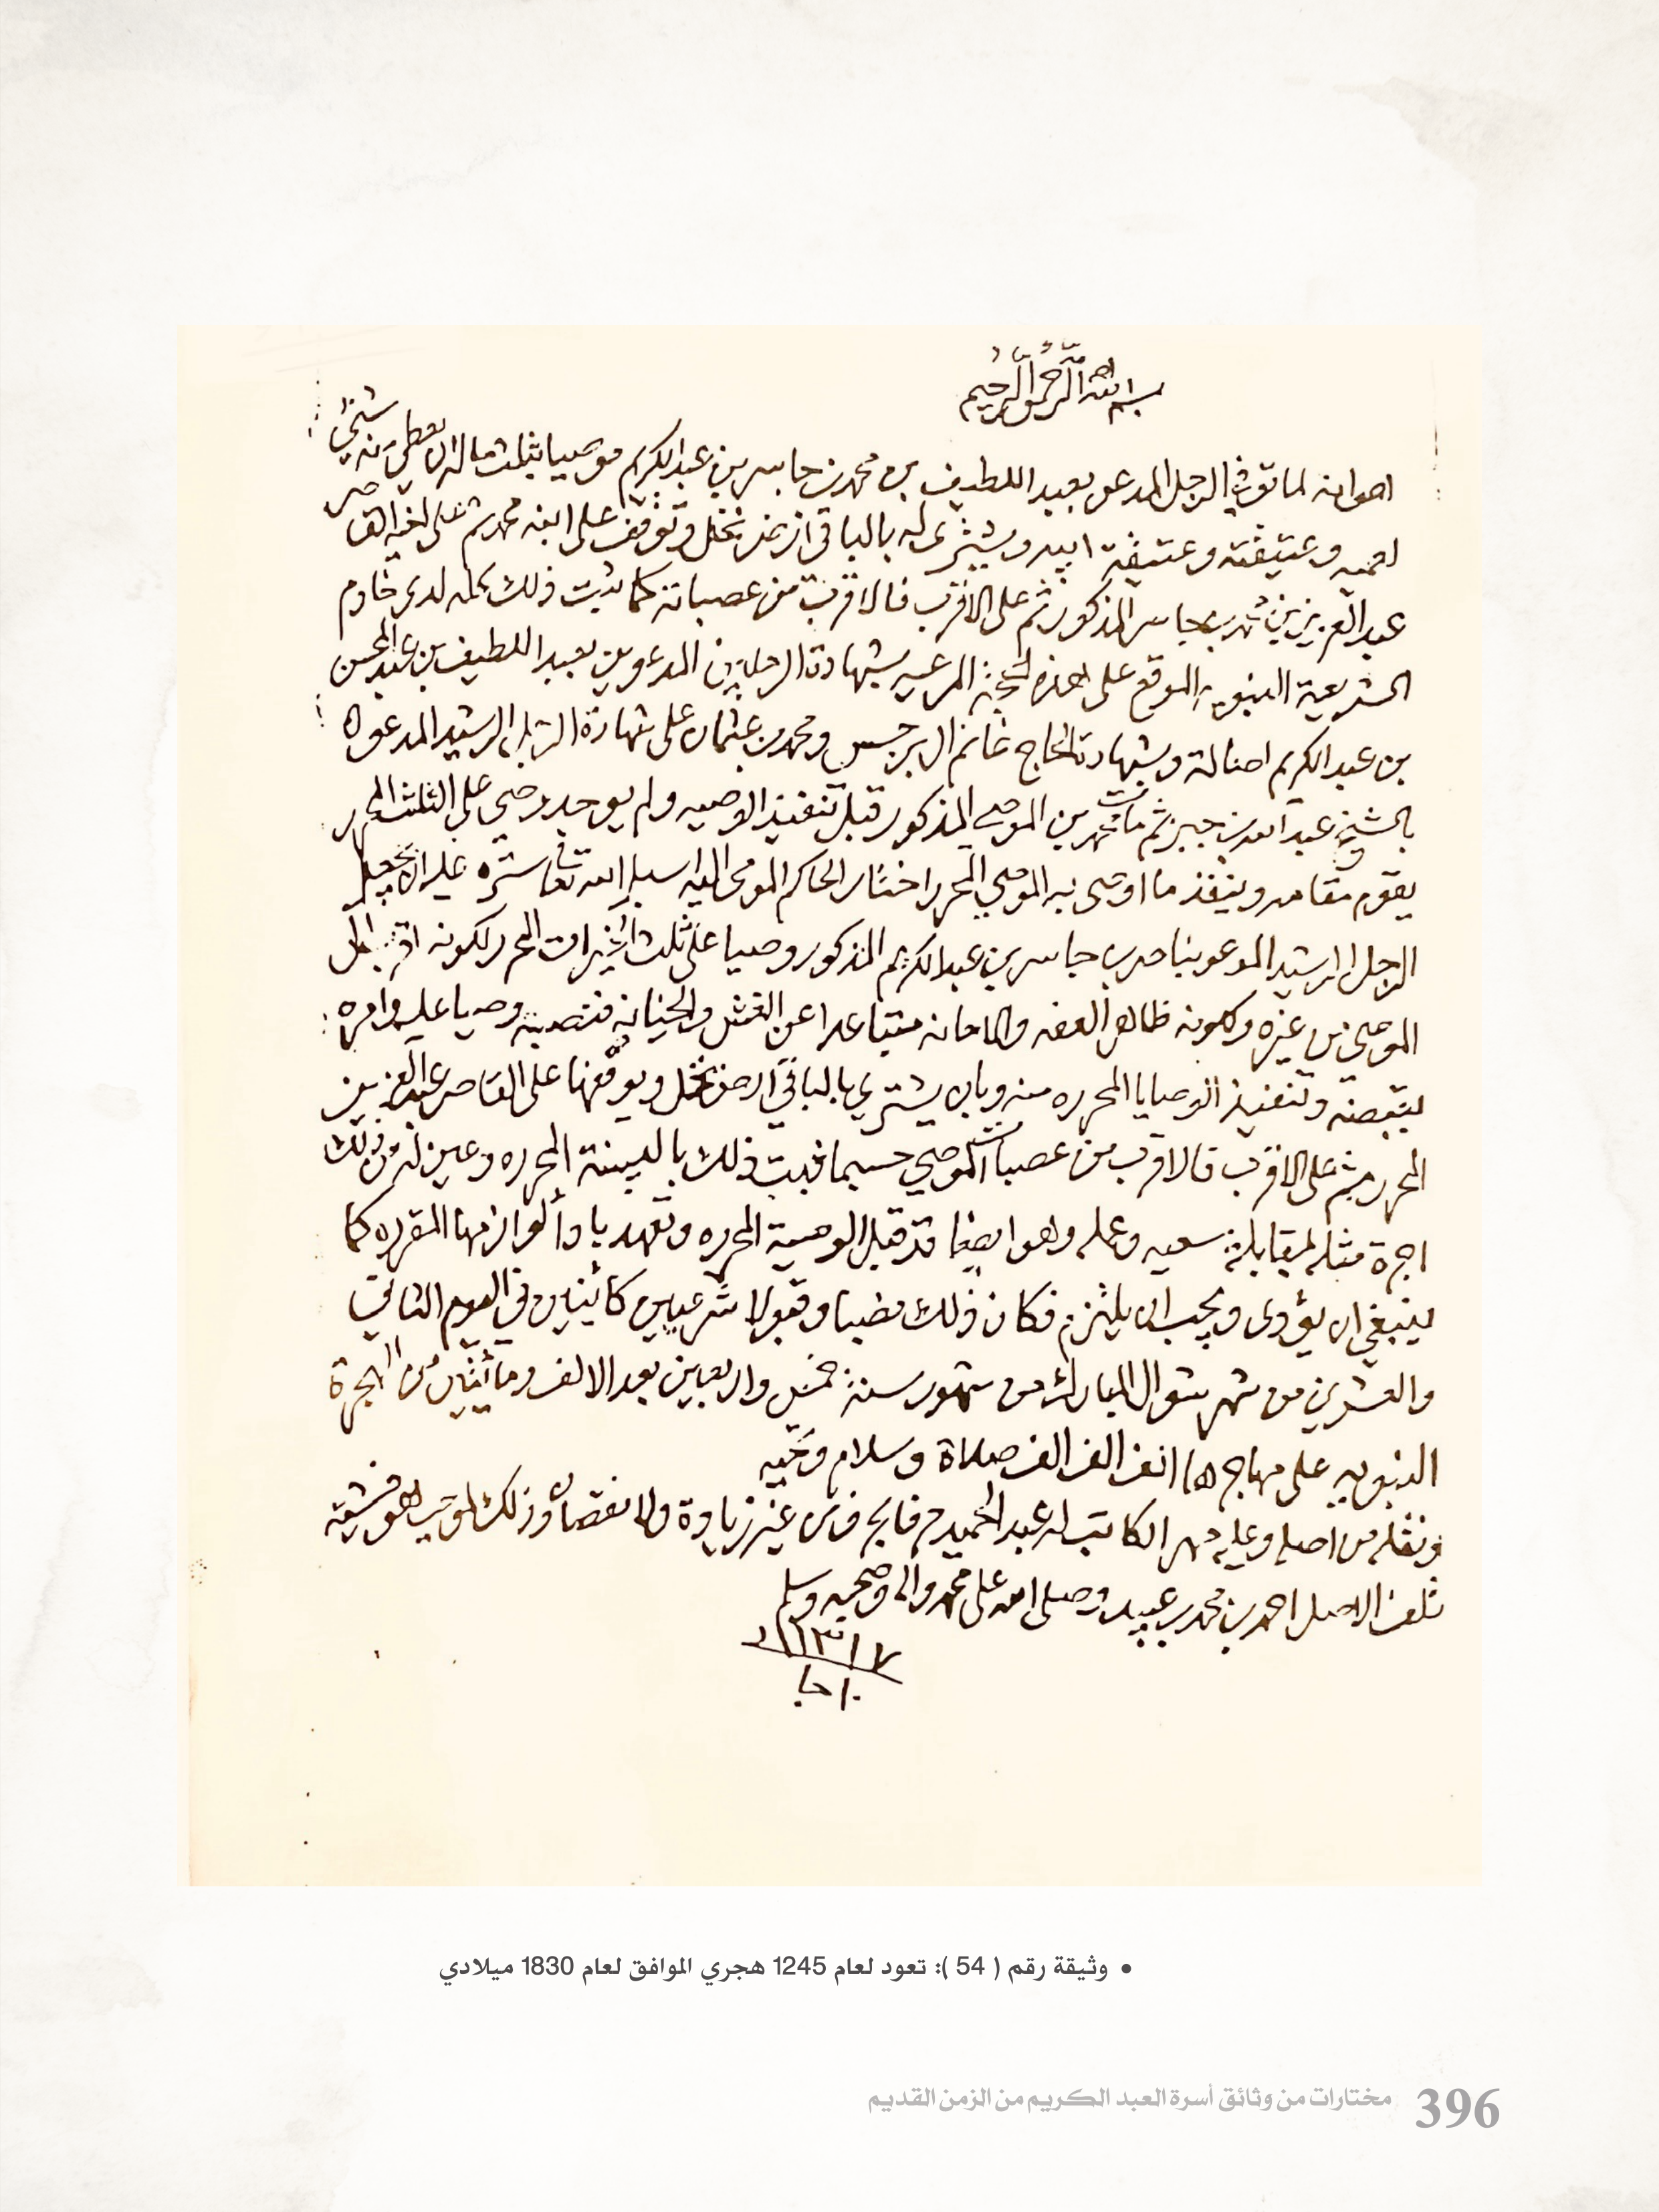 بسم الله الرحمن الرحيم
هو انه لما توفي الرجل المدعو بعبد اللطيف بن محمد بن جاسر بن عبدالكريم موصيا بثلث ماله ان يعطى منه شيئ
لامه وعتيقته وعتيقة ابيه ويشترى له بالباقي ارض نخل وتوقف على ابنه محمد ثم على اخيه القاصر
عبدالعزيز بن محمد بن جاسر المذكور ثم على الاقرب فالاقرب من عصباته كما ثبت ذلك كله لدى خادم
الشريعة النبويه الموقع على هذه الحجة المرعيه بشهادة الرجلين المدعوين بعبد اللطيف بن عبدالمحسن
بن عبدالكريم اصالة وبشهادة الحاج غانم ال برجس ومحمد بن عثمان على شهادة الرجل الرشيد المدعو
بالشيخ عبدالله بن جبر ثم مات محمد بن الموصي المذكور قبل تنفيذ الوصيه ولم يوجد وصي على الثلث المحرر
يقوم مقامه وينفذ ما اوصى به الموصي المحرر اختار الحاكم المومى اليه اسبل الله تعا ستره عليه ان يجعل
الرجل الرشيد المدعو بناصر بن جاسر بن عبدالكريم المذكور وصيا على ثلث الخيرات المحرر لكونه اقرب الى
الموصي من غيره ولكونه ظاهر العفه والامانه متباعدا عن الغش والخيانه فنصبه وصيا عليه وامره
بقبضه وتنفيذ الوصايا المحرره منه وبان يشتري بالباقي ارض نخل ويوقفها على القاصر عبدالعزيز
المحرر ثم على الاقرب فالاقرب من عصبات الموصي حسبما ثبت ذلك بالبينة المحرره وعين له من ذلك
اجرة مثله لمقابلة سعيه وعمله وهو ايضا قد قبل الوصية المحرره وتعهد باداء لوازمها المقرره كما
ينبغي ان يؤدى ويجب ان يلتزم فكان ذلك نصبا وقبولا شرعيين كائنين في اليوم الثاني
والعشرين من شهر شوال المبارك من شهور سنة خمس واربعين بعد الالف ومائتين من الهجرة
النبويه على مهاجرها الف الف صلاة وسلام وتحيه
ونقله من اصله وعليه مهر الكاتب له عبدالحميد من غير زيادة ولا نقصان وذلك
تلف الاصل احمد بن محمد بن عبيد وصلى الله على محمد واله وصحبه وسلم
• وثيقة رقم ( 54 ): تعود لعام 1245 هجري الموافق لعام 1830 ميلادي
396 مختارات من وثائق أسرة العبد الكريم من الزمن القديم